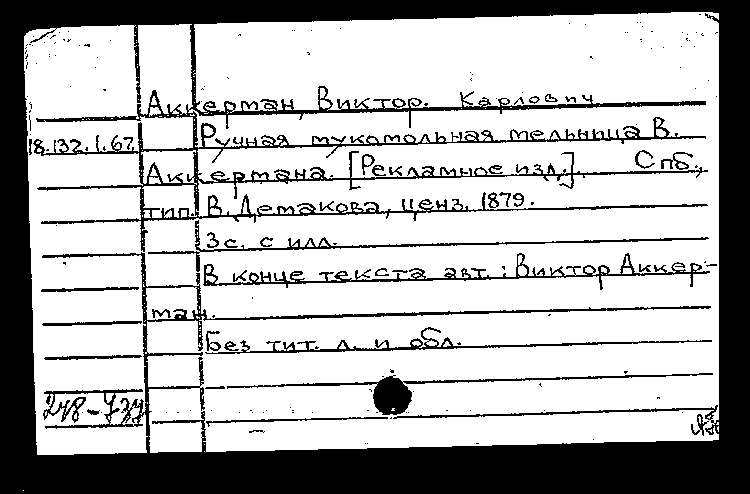 Аккерман, Виктор. Карлович
18.132.1.67. Ручная мукомольная мельница В.
Аккермана. [Рекламное изд.]. Спб.,
тип. В. Демакова, ценз. 1879.
3 с. с илл.
В конце текста авт.: Виктор Аккер-
ман.
Без тит. л. и обл.